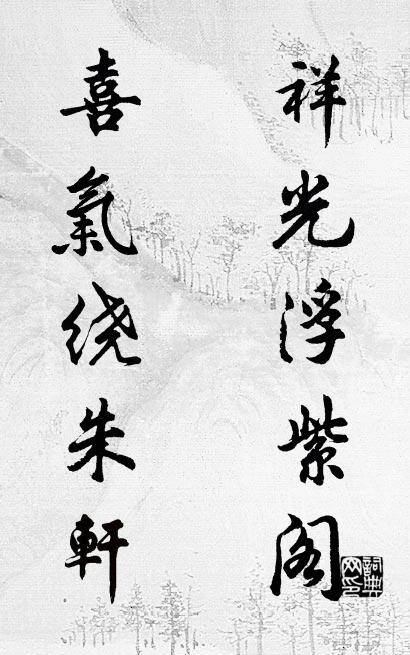 祥光浮紫阁
喜氣绕朱軒
詞典网印